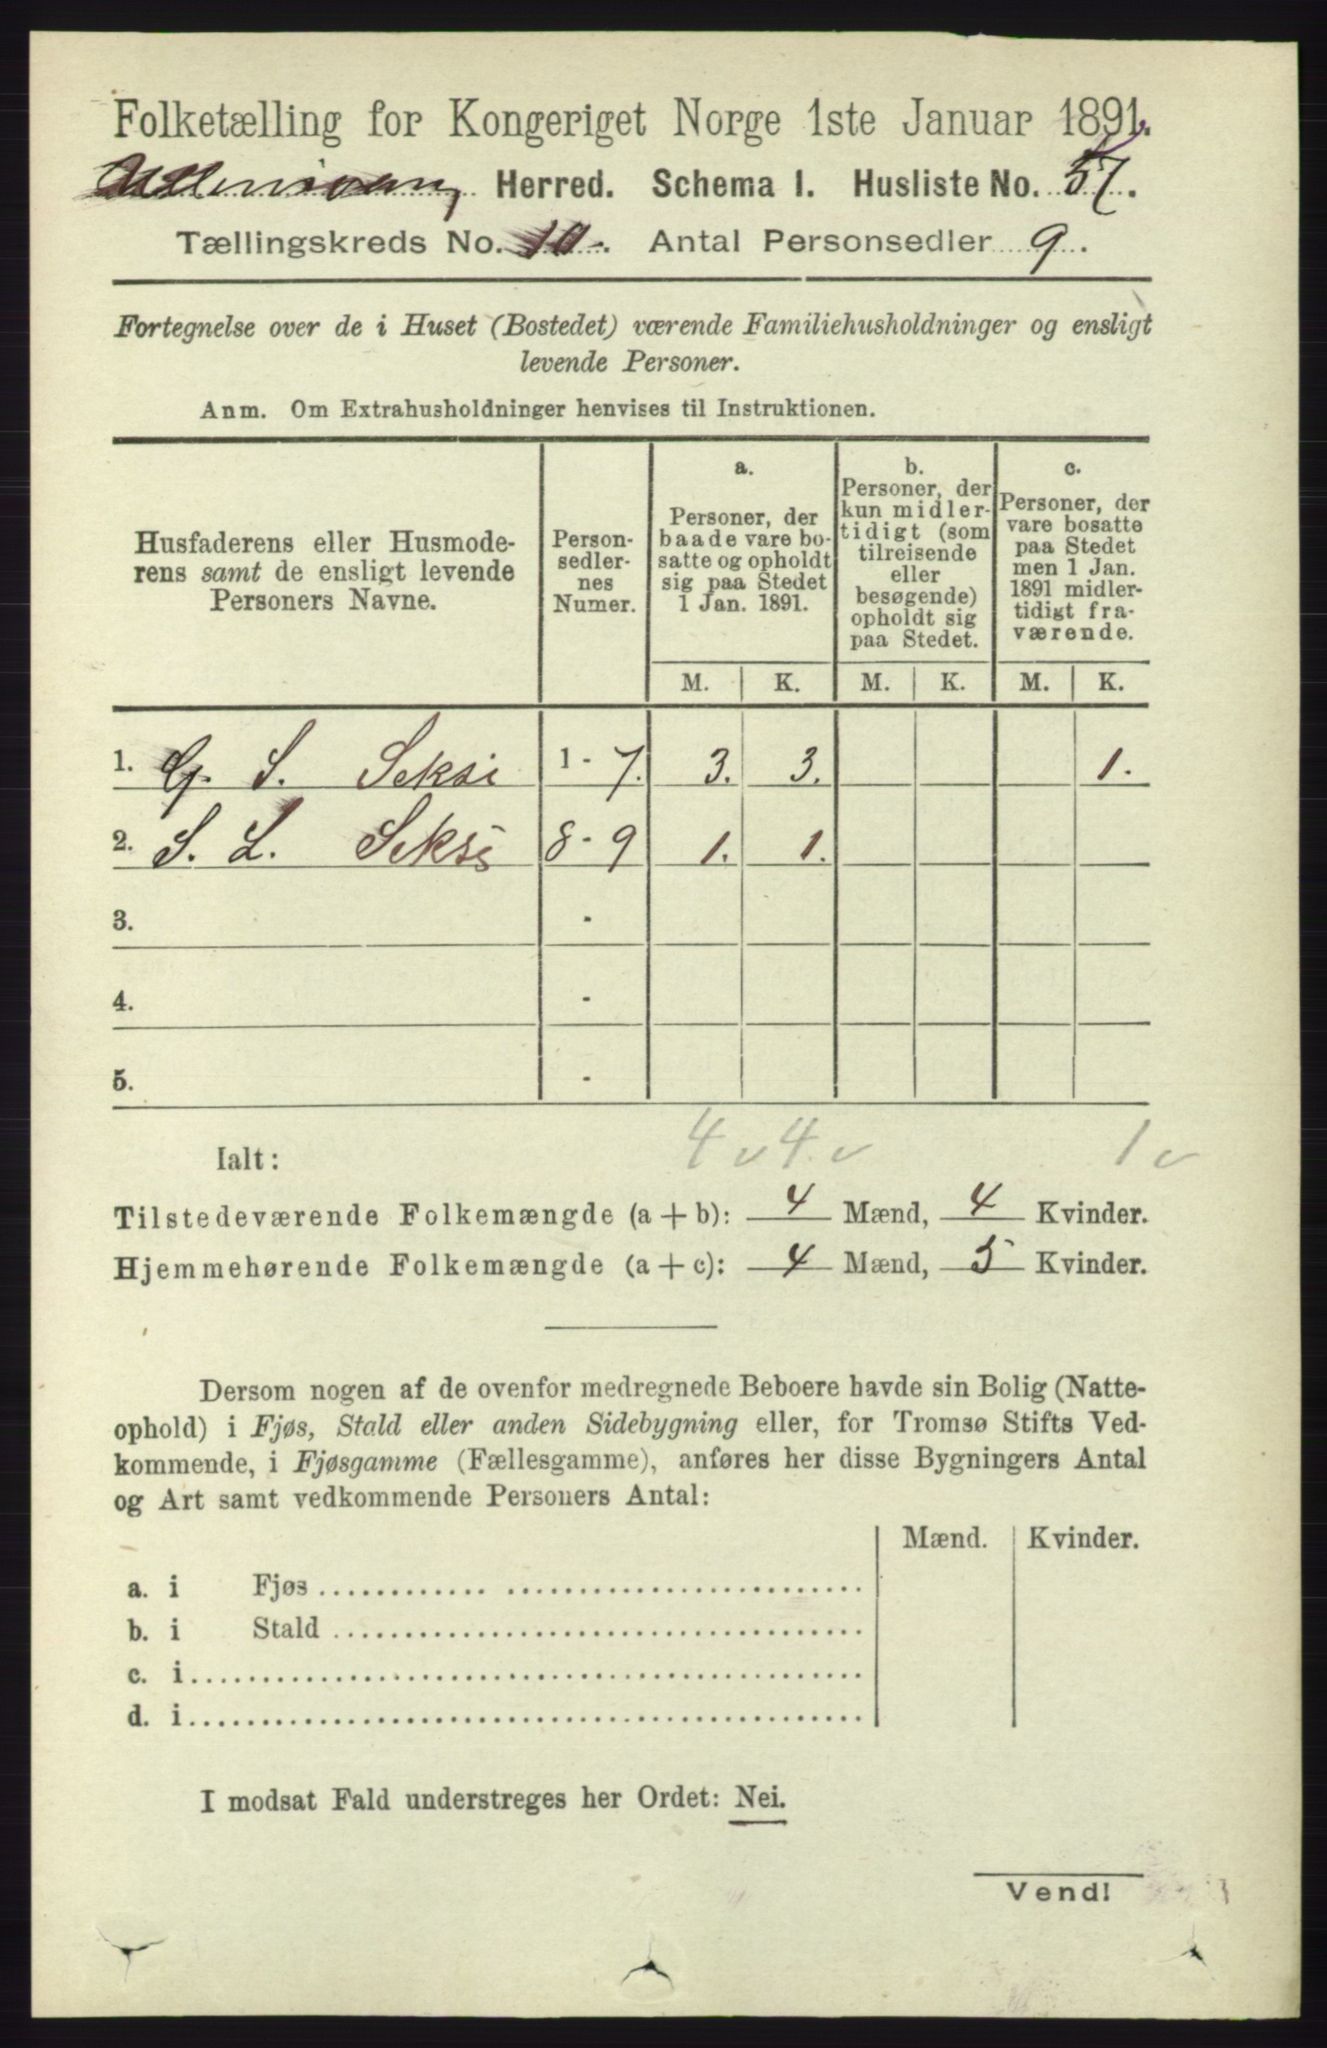 Folketælling for Kongeriget Norge 1ste Januar 1891.
Ullensvang Herred. Schema I. Husliste No. 57.
Tællingskreds No. 10. Antal Personsedler 9.
Fortegnelse over de i Huset (Bostedet) værende Familiehusholdninger og ensligt
levende Personer.
Anm. Om Extrahusholdninger henvises til Instruktionen.
Husfaderens eller Husmode-
rens samt de ensligt levende
Personers Navne.
Person-
sedler-
nes
Numer.
a.
Personer, der
baade vare bo-
satte og opholdt
sig paa Stedet
1 Jan. 1891.
b.
Personer, der
kun midler-
tidigt (som
tilreisende
eller
besøgende)
opholdt sig
paa Stedet.
c.
Personer, der
vare bosatte
paa Stedet
men 1 Jan.
1891 midler-
tidigt fra-
værende.
M. K. M. K. M. K.
1. G. S. Seksi 1 - 7. 3. 3. 1.
2. S. L. Seksi 8 - 9 1. 1.
3. -
4. -
5. -
Ialt: 4 v 4. v 1 v
Tilstedeværende Folkemængde (a + b): 4 Mænd, 4 Kvinder.
Hjemmehørende Folkemængde (a + c): 4 Mænd, 5 Kvinder.
Dersom nogen af de ovenfor medregnede Beboere havde sin Bolig (Natte-
ophold) i Fjøs, Stald eller anden Sidebygning eller, for Tromsø Stifts Ved-
kommende, i Fjøsgamme (Fællesgamme), anføres her disse Bygningers Antal
og Art samt vedkommende Personers Antal:
Mænd. Kvinder.
a. i Fjøs
b. i Stald
c. i
d. i
I modsat Fald understreges her Ordet: Nei.
Vend!